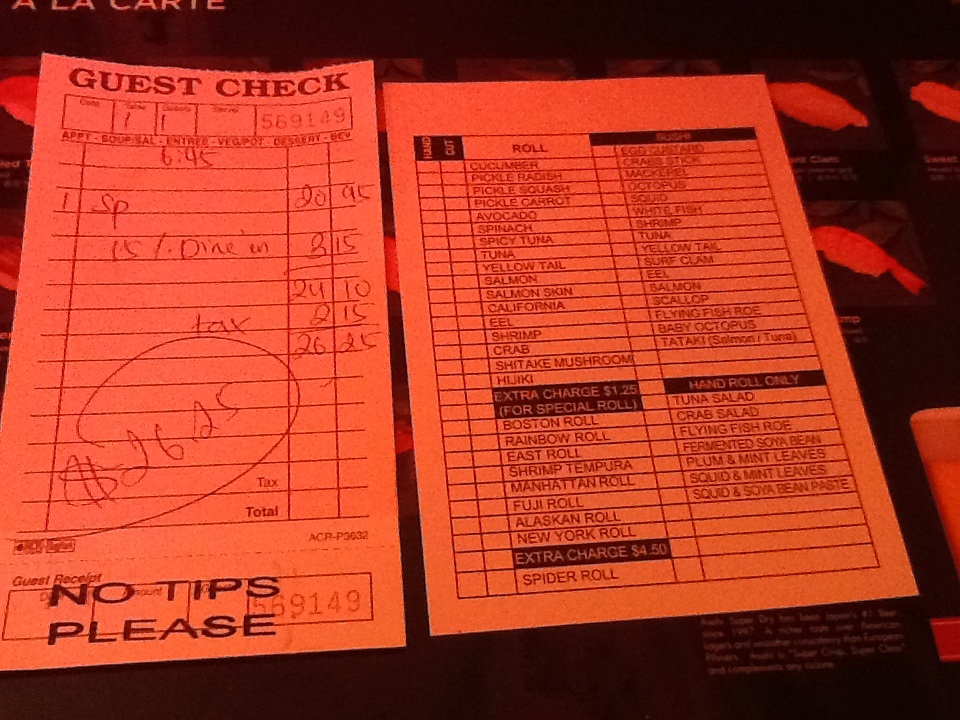 A LA CARTE
GUEST CHECK
Date Table Guests Server
1 1 569149
APPT - SOUP/SAL - ENTREE - VEG/POT - DESSERT - BEV
6:45
1 Sp 20 95
15 % Dine in 3 15
24 10
tax 2 15
26 25
$26.25
Tax
Total
ACR-P3632
Guest Receipt
569149
NO TIPS
PLEASE
HAND CUT ROLL SUSHI
CUCUMBER EGG CUSTARD
PICKLE RADISH CRABS STICK
PICKLE SQUASH MACKEREL
PICKLE CARROT OCTOPUS
AVOCADO SQUID
SPINACH WHITE FISH
SPICY TUNA SHRIMP
TUNA TUNA
YELLOW TAIL YELLOW TAIL
SALMON SURF CLAM
SALMON SKIN EEL
CALIFORNIA SALMON
EEL SCALLOP
SHRIMP FLYING FISH ROE
CRAB BABY OCTOPUS
SHITAKE MUSHROOM TATAKI (Salmon / Tuna)
HIJIKI
EXTRA CHARGE $1.25 HAND ROLL ONLY
(FOR SPECIAL ROLL) TUNA SALAD
BOSTON ROLL CRAB SALAD
RAINBOW ROLL FLYING FISH ROE
EAST ROLL FERMENTED SOYA BEAN
SHRIMP TEMPURA PLUM & MINT LEAVES
MANHATTAN ROLL SQUID & MINT LEAVES
FUJI ROLL SQUID & SOYA BEAN PASTE
ALASKAN ROLL
NEW YORK ROLL
EXTRA CHARGE $4.50
SPIDER ROLL